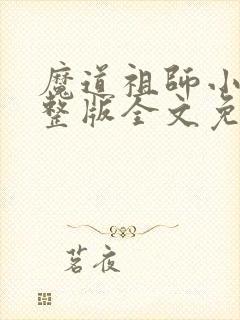 魔道祖师小
整版全文免
茗夜